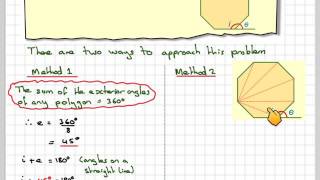 i θ
There are two ways to approach this problem
Method 1
Method 2
The sum of the exterior angles
of any polygon = 360°
∴ e = 360°
8
= 45°
θ
i + e = 180° (angles on a
straight line)